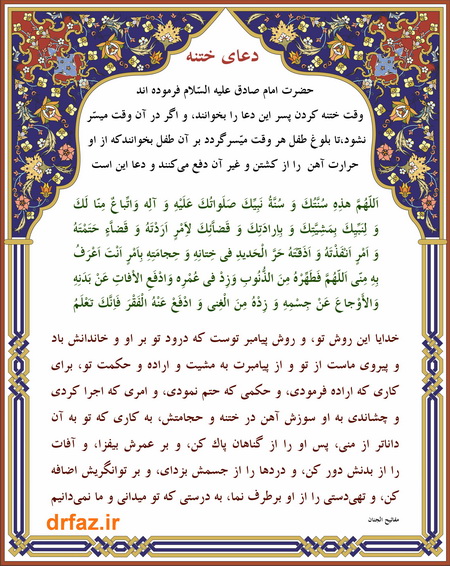 دعای ختنه
حضرت امام صادق علیه السّلام فرموده اند
وقت ختنه کردن پسر این دعا را بخوانند، و اگر در آن وقت میسّر
نشود،تا بلوغ طفل هر وقت میّسرگردد بر آن طفل بخوانندکه از او
حرارت آهن را از کشتن و غیر آن دفع می‌کنند و دعا این است
اَللّهُمَّ هذِهِ سُنَّتُكَ وَ سُنَّةُ نَبِيِّكَ صَلَواتُكَ عَلَيْهِ وَ آلِهِ وَاتِّباعٌ مِنّا لَكَ
وَ لِنَبِيِّكَ بِمَشِيَّتِكَ وَ بِاِرادَتِكَ وَ قَضآئِكَ لِاَمْرٍ اَرَدْتَهُ وَ قَضآءٍ حَتَمْتَهُ
وَ اَمْرٍ اَنْفَذْتَهُ وَ اَذَقْتَهُ حَرَّ الْحَديدِ فى خِتانِهِ وَ حِجامَتِهِ بِاَمْرٍ اَنْتَ اَعْرَفُ
بِهِ مِنّى اَللّهُمَّ فَطَهِّرْهُ مِنَ الذُّنُوبِ وَزِدْ فى عُمْرِهِ وَادْفَعِ الْأفاتِ عَنْ بَدَنِهِ
وَالْأَوْجاعَ عَنْ جِسْمِهِ وَ زِدْهُ مِنَ الْغِنى وَ ادْفَعْ عَنْهُ الْفَقْرَ فَاِنَّكَ تَعْلَمُ
خدایا این روش تو، و روش پیامبر توست که درود تو بر او و خاندانش باد
و پیروی ماست از تو و از پیامبرت به مشیت و اراده و حکمت تو، برای
کاری که اراده فرمودی، و حکمی که حتم نمودی، و امری که اجرا کردی
و چشاندی به او سوزش آهن در ختنه و حجامتش، به کاری که تو به آن
داناتر از منی، پس او را از گناهان پاک کن، و بر عمرش بیفزا، و آفات
را از بدنش دور کن، و دردها را از جسمش بزدای، و بر توانگریش اضافه
کن، و تهی‌دستی را از او برطرف نما، به درستی که تو میدانی و ما نمی‌دانیم
مفاتیح الجنان
drfaz.ir